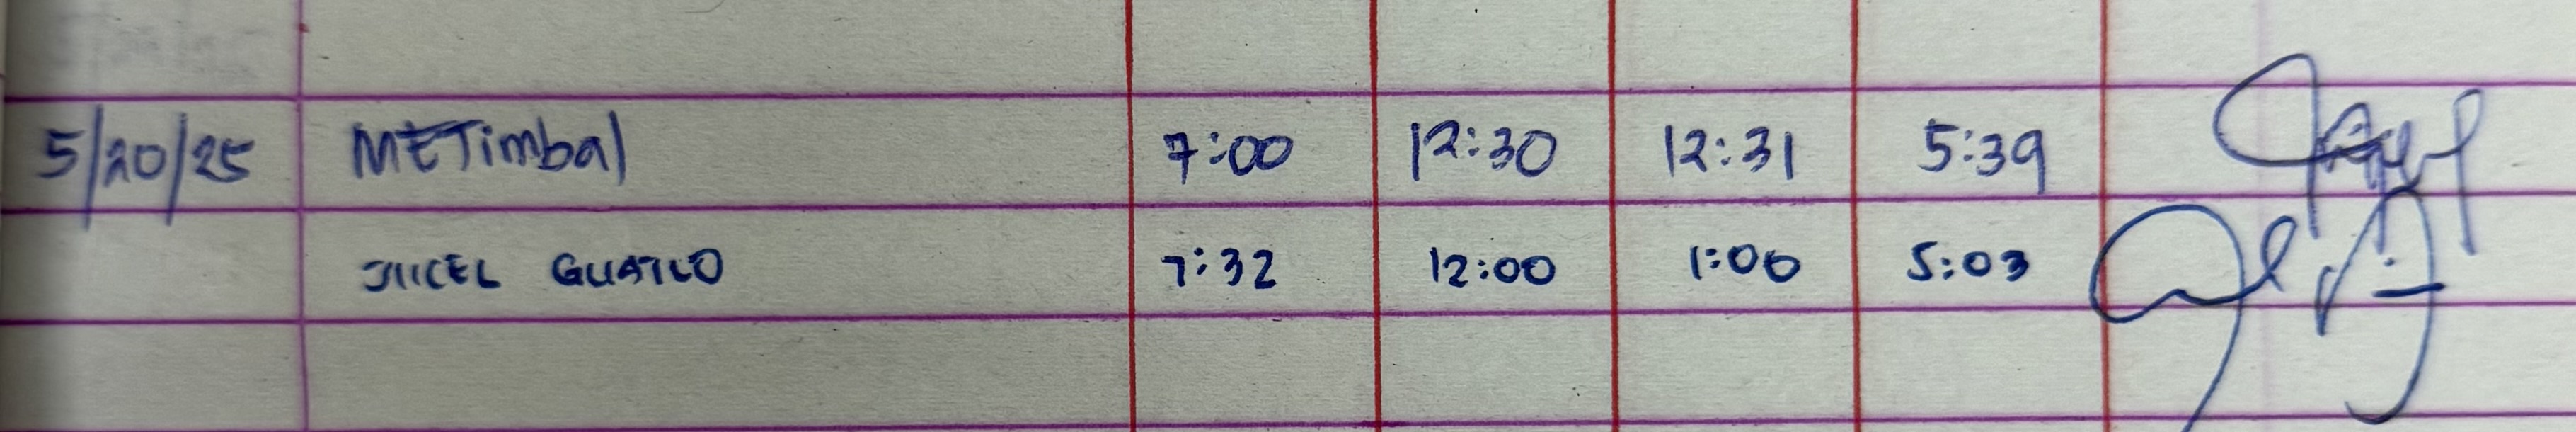 5/20/25 METimbal 7:00 12:30 12:31 5:39
JIICEL GUATLO 7:32 12:00 1:00 5:03